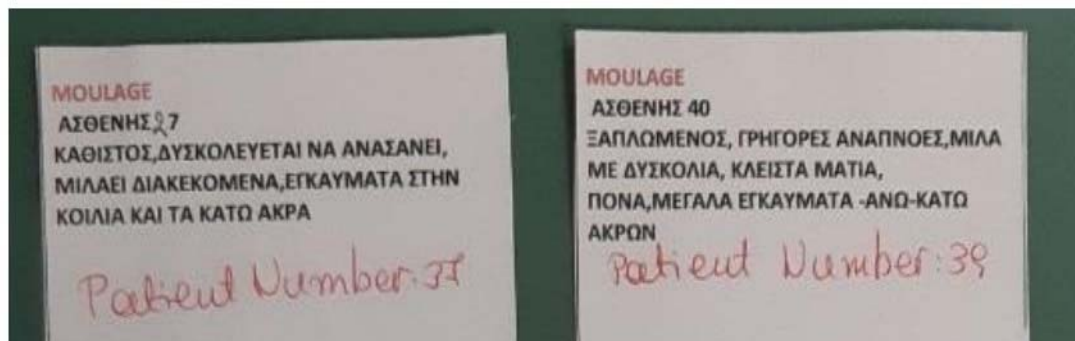 MOULAGE
ΑΣΘΕΝΗΣ 7
ΚΑΘΙΣΤΟΣ,ΔΥΣΚΟΛΕΥΕΤΑΙ ΝΑ ΑΝΑΣΑΝΕΙ,
ΜΙΛΑΕΙ ΔΙΑΚΕΚΟΜΕΝΑ,ΕΓΚΑΥΜΑΤΑ ΣΤΗΝ
ΚΟΙΛΙΑ ΚΑΙ ΤΑ ΚΑΤΩ ΑΚΡΑ
Patient Number:
MOULAGE
ΑΣΘΕΝΗΣ 40
ΞΑΠΛΩΜΕΝΟΣ, ΓΡΗΓΟΡΕΣ ΑΝΑΠΝΟΕΣ,ΜΙΛΑ
ΜΕ ΔΥΣΚΟΛΙΑ, ΚΛΕΙΣΤΑ ΜΑΤΙΑ,
ΠΟΝΑ,ΜΕΓΑΛΑ ΕΓΚΑΥΜΑΤΑ -ΑΝΩ-ΚΑΤΩ
ΑΚΡΩΝ
Patient Number:39